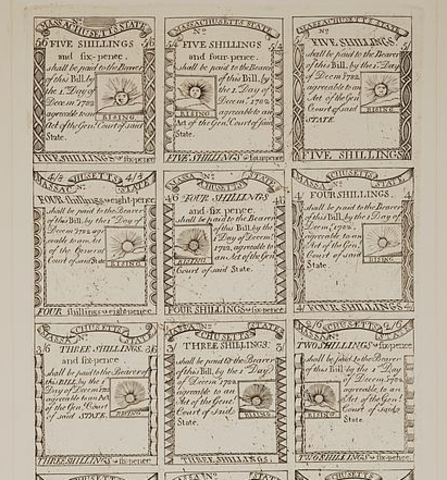 MASSACHUSETTS STATE
No
5/6 5/6
FIVE SHILLINGS
and six-pence.
shall be paid to the Bearer
of this Bill, by
the 1st Day of
Decem 1782
agreeable to an
RISING
Act of the Genl Court of said
State.
FIVE SHILLINGS & six-pence
MASSACHUSETTS STATE
No
5/4 5/4
FIVE SHILLINGS
and four-pence.
shall be paid to the Bearer
of this Bill, by
the 1st Day of
Decem 1782
agreeable to an
RISING
Act of the Genl Court of said
State.
FIVE SHILLINGS & fourpence
MASSACHUSETTS STATE
No
FIVE SHILLINGS
shall be paid to the Bearer
of this Bill, by the 1st Day
of Decem 1782
agreeable to an
Act of the Genl
RISING
Court of said
STATE.
FIVE SHILLINGS
4/8 4/8
MASSACHUSETTS STATE
FOUR shillings & eight-pence
shall be paid to the Bearer
of this Bill by the 1st Day of
Decem 1782 agre-
eable to an Act
of the General
Court of said State.
RISING
FOUR shillings & eight-pence.
MASSACHUSETTS STATE
No
4/6 4/6
FOUR SHILLINGS
and six pence
shall be paid to the Bearer
of this Bill by the
1st Day of Decem
1782, agreeable to
an Act of the Genl
RISING
Court of said State.
FOUR SHILLINGS & six-pence
MASSACHUSETTS STATE
No
4/ 4/
FOUR SHILLINGS.
shall be paid to the Bearer
of this Bill by the 1st Day of
Decem 1782,
agreeable to
an Act of the Genl
Court of said State.
RISING
4/ FOUR SHILLINGS
MASSACHUSETTS STATE
No
3/6 3/6
THREE SHILLINGS.
and six pence
shall be paid to the Bearer of
this BILL, by the 1
Day of Decem 1782
agreeable to an Act
of the Genl Court
of said STATE.
RISING
THREE SHILLINGS & six-pence
MASSACHUSETTS STATE
No
3/ 3/
THREE SHILLINGS.
shall be paid to the Bearer
of this Bill, by the 1st Day
of Decem 1782,
agreeable to an
Act of the Genl
Court of said
State.
RISING
THREE SHILLINGS.
2/6
MASSACHUSETTS STATE
No
TWO SHILLINGS & six pence
shall be paid to the Bearer
of this Bill by the 1st
Day of Decem
1782, agreeable
to an Act of the
Genl Court of said
State.
RISING
TWO SHILLINGS & six-pence